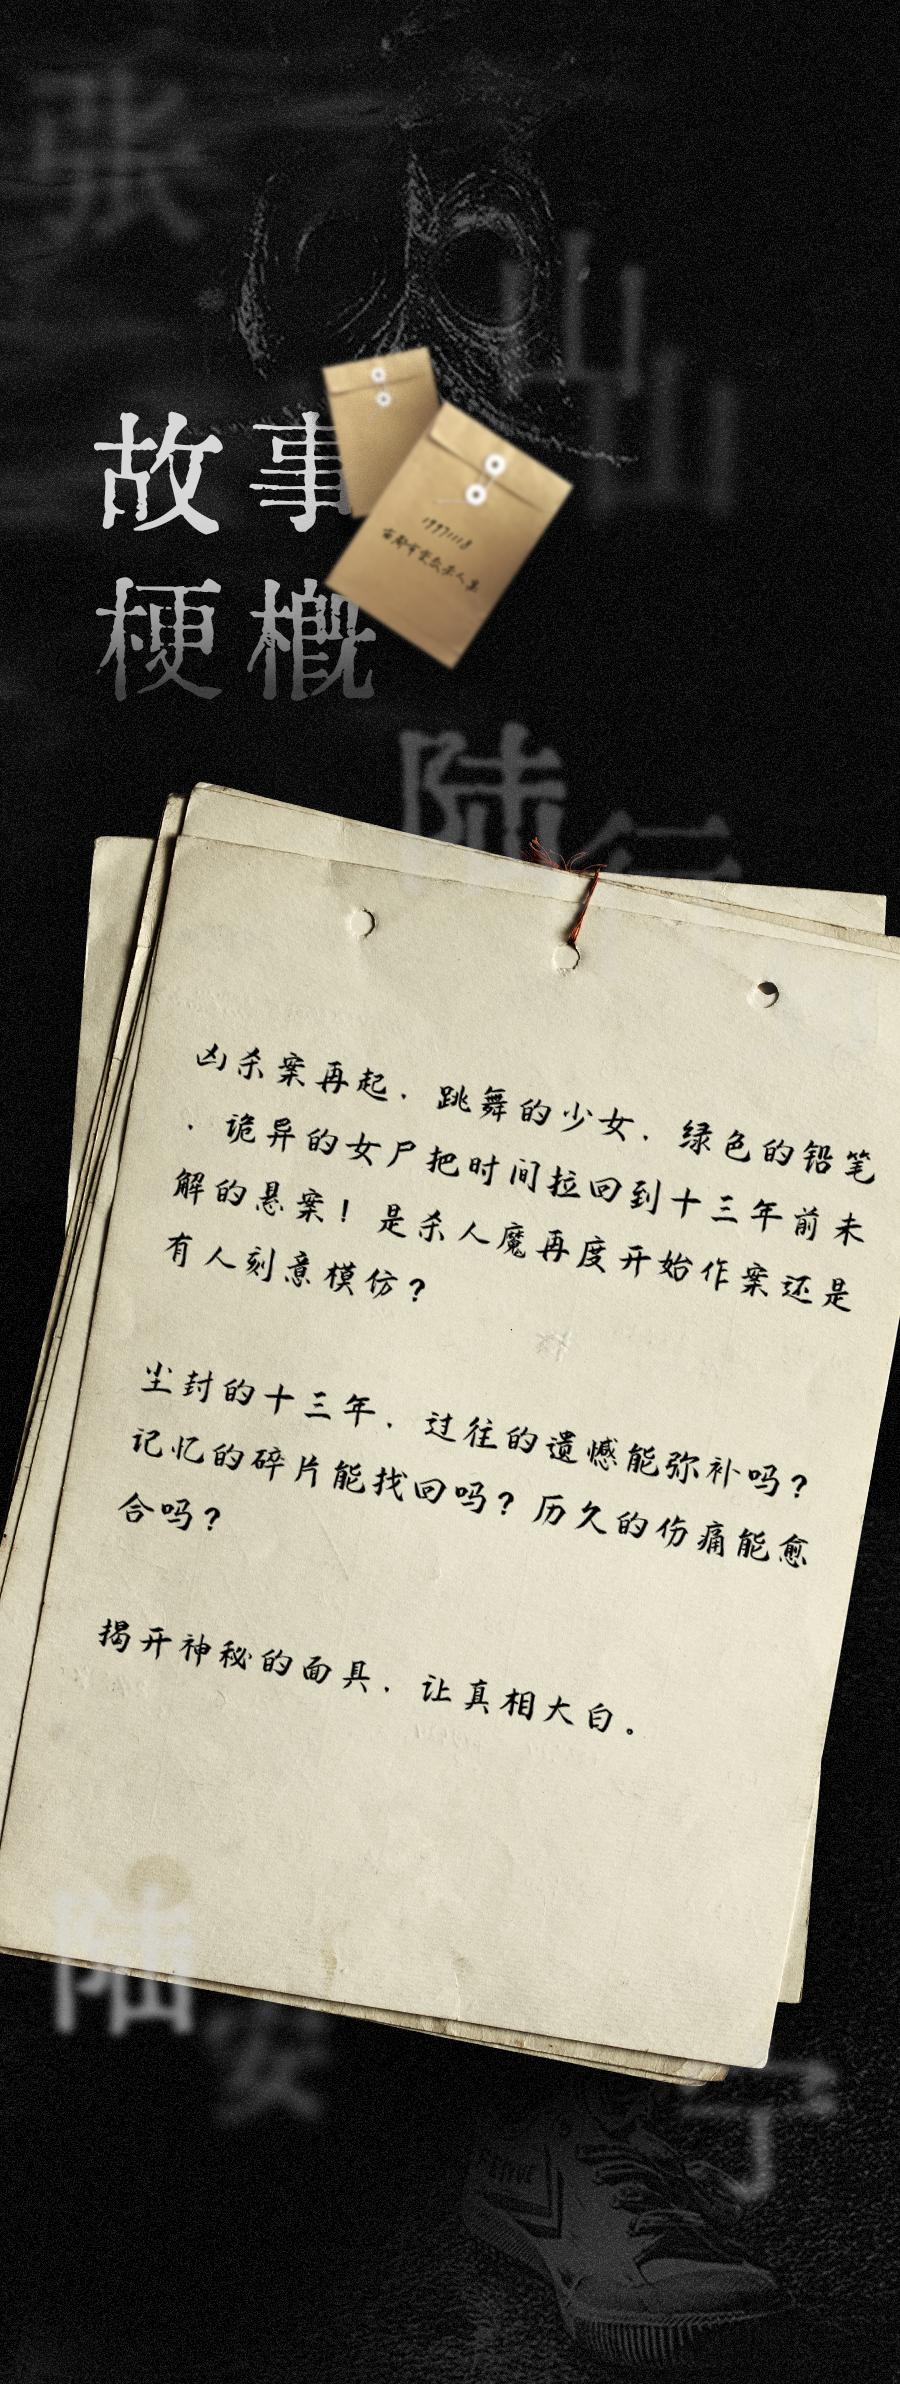 张
山
山
故事
梗概
19971118
陆
行
凶杀案再起.跳舞的少女.绿色的铅笔
.诡异的女尸把时间拉回到十三年前未
解的悬案！是杀人魔再度开始作案还是
有人刻意模仿？
尘封的十三年.过往的遗憾能弥补吗？
记忆的碎片能找回吗？历久的伤痛能愈
合吗？
揭开神秘的面具.让真相大白。
陆
安
宁